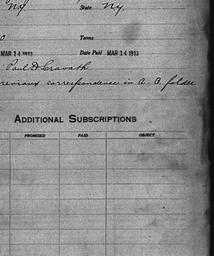 NY State NY,
Terms
MAR 14 1913 Date Paid MAR 14 1913
Paul D Cravath
correspondence in A. B. folder
ADDITIONAL SUBSCRIPTIONS
PROMISED PAID OBJECT